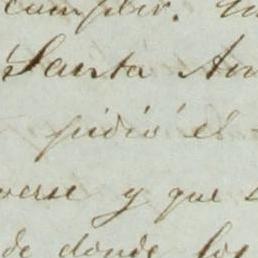 cumplir.
Santa An
pidió él
verse y que
de donde los